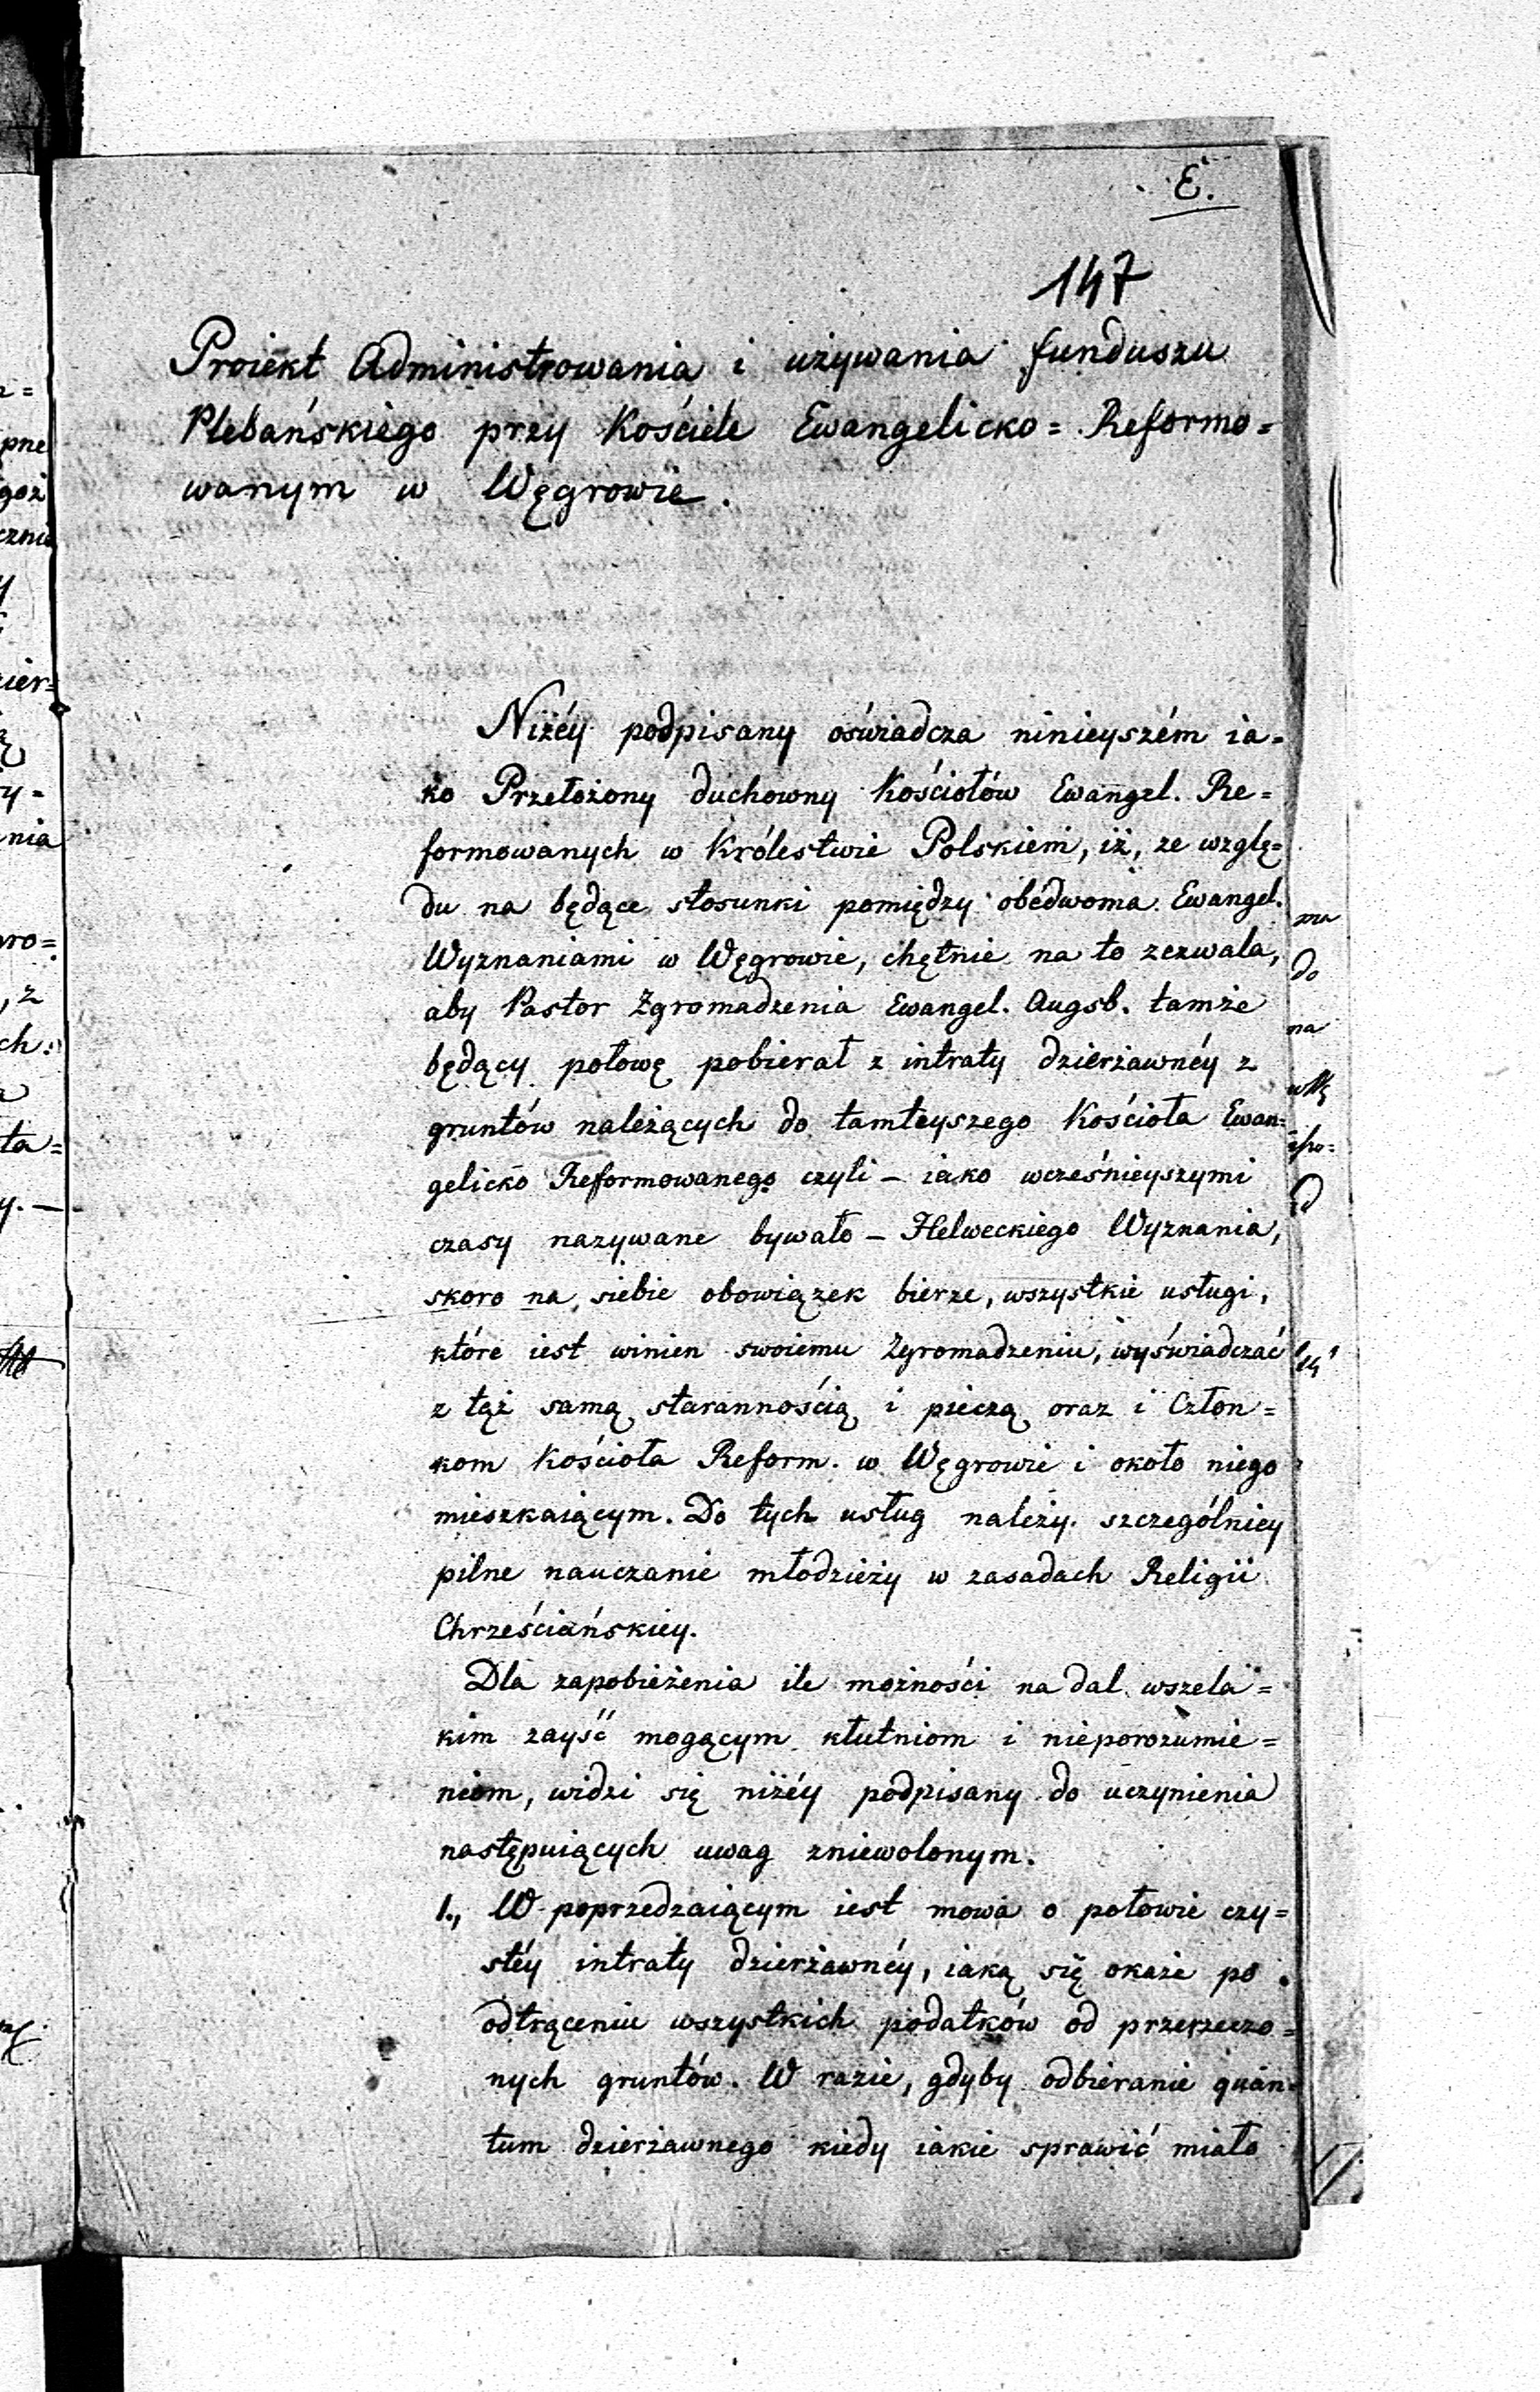 E.
147
Proiekt Administrowania i używania funduszu
Plebańskiego przy Kościele Ewangelicko = Reformo =
wanym w Węgrowie.
Niżéy podpisany oświadcza ninieyszém ia =
ko Przełożony duchowny Kościołów Ewangel. Re =
formowanych w Królestwie Polskiem, iż, ze wzglę =
du na będące stosunki pomiędzy obédwoma Ewangel.
Wyznaniami w Węgrowie, chętnie na to zezwala,
aby Pastor Zgromadzenia Ewangel. Augsb. tamże
będący połowę pobierał z intraty dzierżawnéy z
gruntów należących do tamteyszego Kościoła Ewan =
gelicko Reformowanego czyli – iako wcześnieyszymi
czasy nazywane bywało – Helweckiego Wyznania,
skoro na siebie obowiązek bierze, wszystkie usługi,
które iest winien swoiemu Zgromadzeniu, wyświadczać
z tąż samą starannością i pieczą oraz i Człon =
kom Kościoła Reform. w Węgrowie i około niego
mieszkaiącym. Do tych usług należy szczególniey
pilne nauczanie młodzieży w zasadach Religii
Chrześciańskiey.
Dla zapobieżenia ile możności na dal wszela =
kim zayść mogącym kłutniom i nieporozumie =
niom, widzi się niżéy podpisany do uczynienia
następuiących uwag zniewolonym.
1., W poprzedzaiącym iest mowa o połowie czy =
stéy intraty dzierżawnéy, iaką się okaże po
odtrąceniu wszystkich podatków od przerzeczo =
nych gruntów. W razie, gdyby odbieranie quan =
tum dzierżawnego kiedy iakie sprawić miało